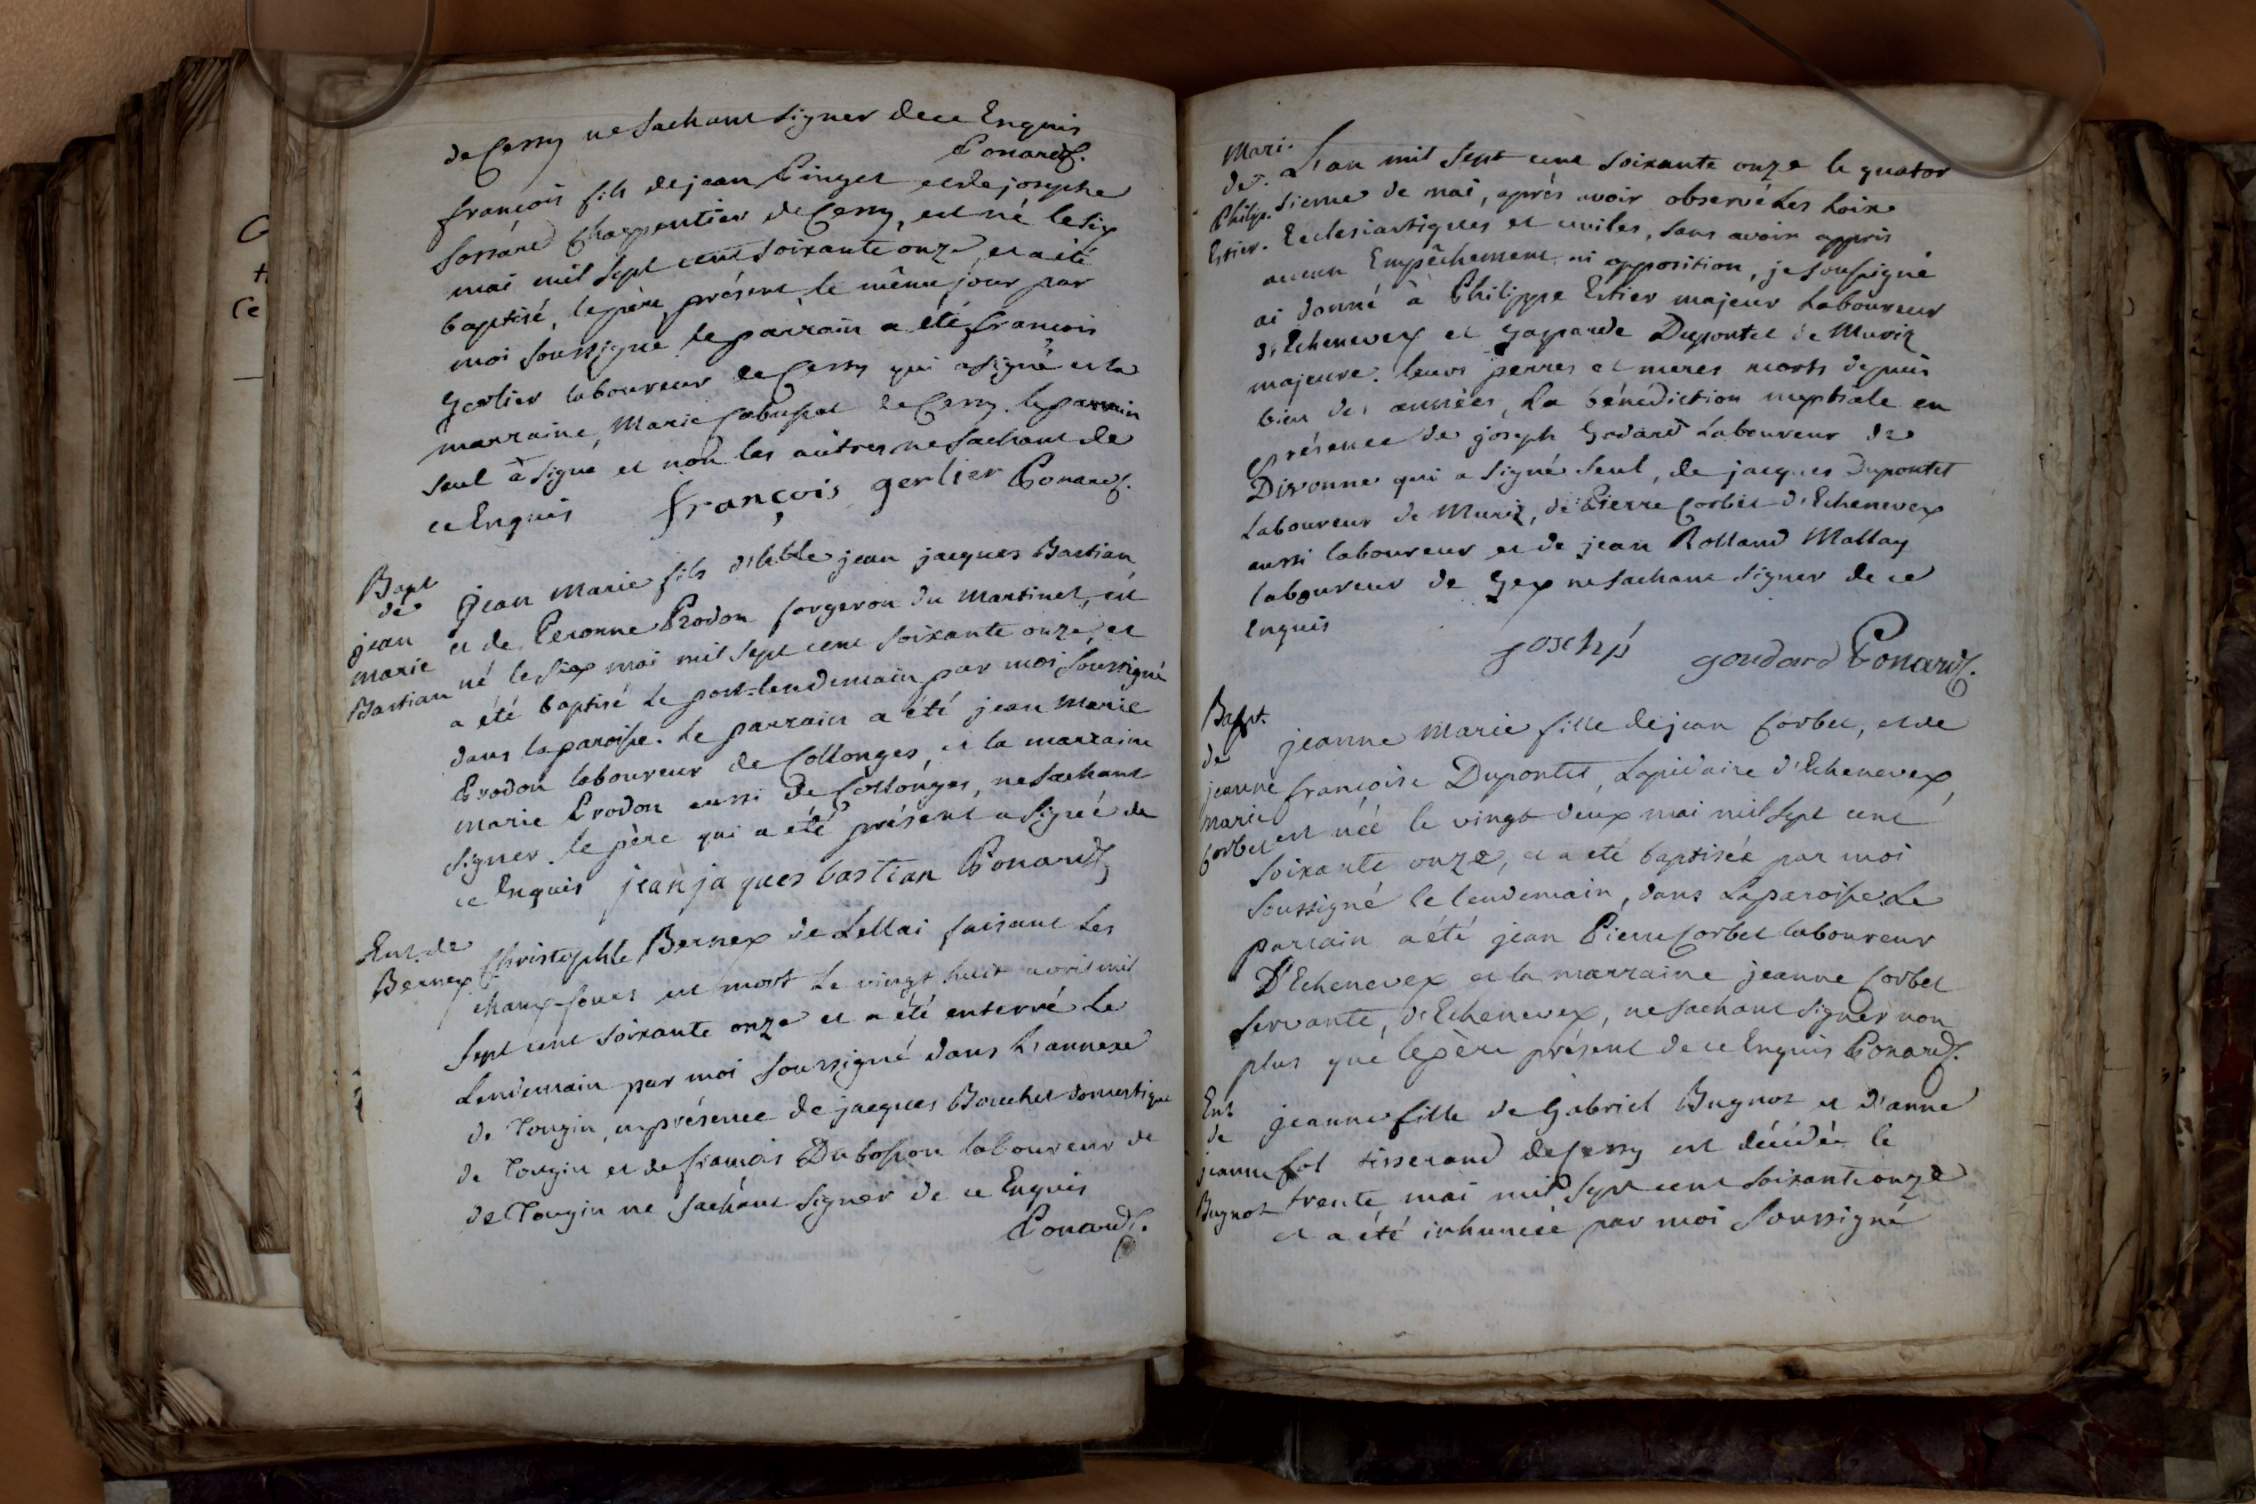 de Cessy ne sachant signer de ce Enquis
Ponard C.
françois fils de jean Pinget et de josephe
Charpentier de Cessy, est né le six
mai mil sept cent soixante onze, et a été
baptisé, le père présent le même jour par
moi soussigné le parrain a été françois
gerlier laboureur de Cessy qui a signé et la
marraine, Marie de Cessy. le parrain
seul a signé et non les autres ne sachant de
ce Enquis françois gerlier Ponard C.
Bapt
de
jean
marie
Bastian
jean marie fils d'hble jean jacques Bastian
et de Peronne Prodon forgeron du Martinet, est
né le six mai mil sept cent soixante onze, et
a été baptisé le post-lendemain par moi soussigné
dans la paroisse. Le parrain a été jean marie
Prodon laboureur de Collonges, et la marraine
marie Prodon aussi de Collonges, ne sachant
signer. le père qui a été présent a signé de
ce Enquis jean ja ques bastian Ponard C
Ent. de
Bernex
Christophle Bernex de Lellai faisant les
chaux-fours est mort le vingt huit avril mil
sept cent soixante onze et a été enterré le
Lendemain par moi soussigné dans L'annexe
de Tougin, en présence de jacques Bouchet domestique
de Tougin et de françois Dubosson laboureur de
de Tougin ne sachant signer de ce Enquis
Ponard C.
C
ce
Mari.
de
Philip.
Estier.
L'an mil sept cent soixante onze le quator
sieme de mai, après avoir observé Les Loix
Eclesiastiques et civiles, sans avoir appris
aucun Empêchement ni opposition, je soussigné
ai donné à Philippe Estier majeur Laboureur
d'Echenevex et gasparde Dupontet de Muriz
majeure. leurs perres et meres morts depuis
bien des années, La bénédiction nuptiale en
Présence de joseph Godard Laboureur de
Divonne qui a signé seul, de jacques Dupontet
Laboureur de Muriz, de Pierre Corbet d'Echenevex
aussi laboureur et de jean Rolland Mallay
laboureur de Gex ne sachant signer de ce
enquis
goudard Ponard C.
Bapt.
de
jeanne
marie
Corbet
jeanne Marie fille de jean Corbet, et de
françoise Dupontet, Lapidaire d'Echenevex,
est née le vingt deux mai mil sept cent
soixante onze, et a été baptisée par moi
soussigné le lendemain, dans La paroisse. Le
parrain a été jean Pierre Corbet laboureur
D'Echenevex et la marraine jeanne Corbet
servante, d'Echenevex, ne sachant signer non
plus que le père présent de ce Enquis Ponard C.
Ent
de
jeanne
Bugnot
jeanne fille de Gabriel Bugnot et d'anne
fol tisserand de Cessy est décédée le
trente mai mil sept cent soixante onze
et a été inhumée par moi soussigné